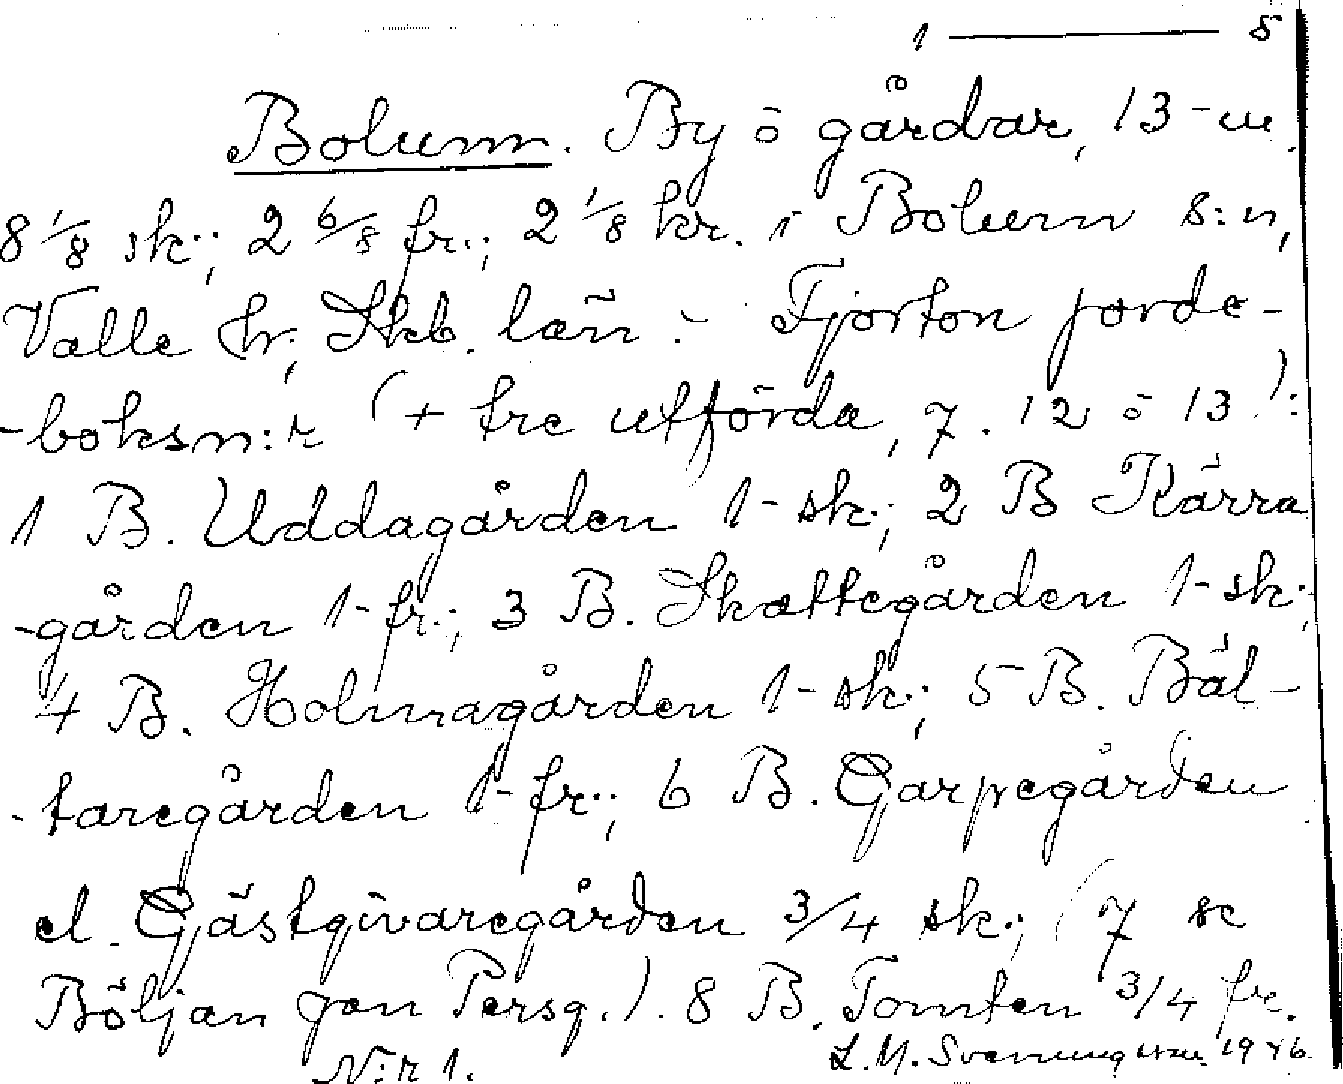 1 ——— 5
Bolum. By ö gårdar, 13 - m.
8 1/8 sk.; 2 6/8 fr.; 2 1/8 kr. i Bolum s:n,
Valle hr, Skb. län. - Fjorton jorde-
-boksn:r (+ tre utförda, 7. 12 ö 13.):
1 B. Uddagården 1 - sk.; 2 B Kärra
-gården 1 - fr.; 3 B. Skattegården 1 - sk.;
4 B. Holmagården 1 - sk.; 5 B. Bäl-
-taregården 1 - fr.; 6 B. Garpegården
el. Gästgivaregården 3/4 sk.; (7 se
Böljan Jon Persg.). 8 B. Tomten 3/4 fr.
N:r 1. L. M. Svenungsson 1946.